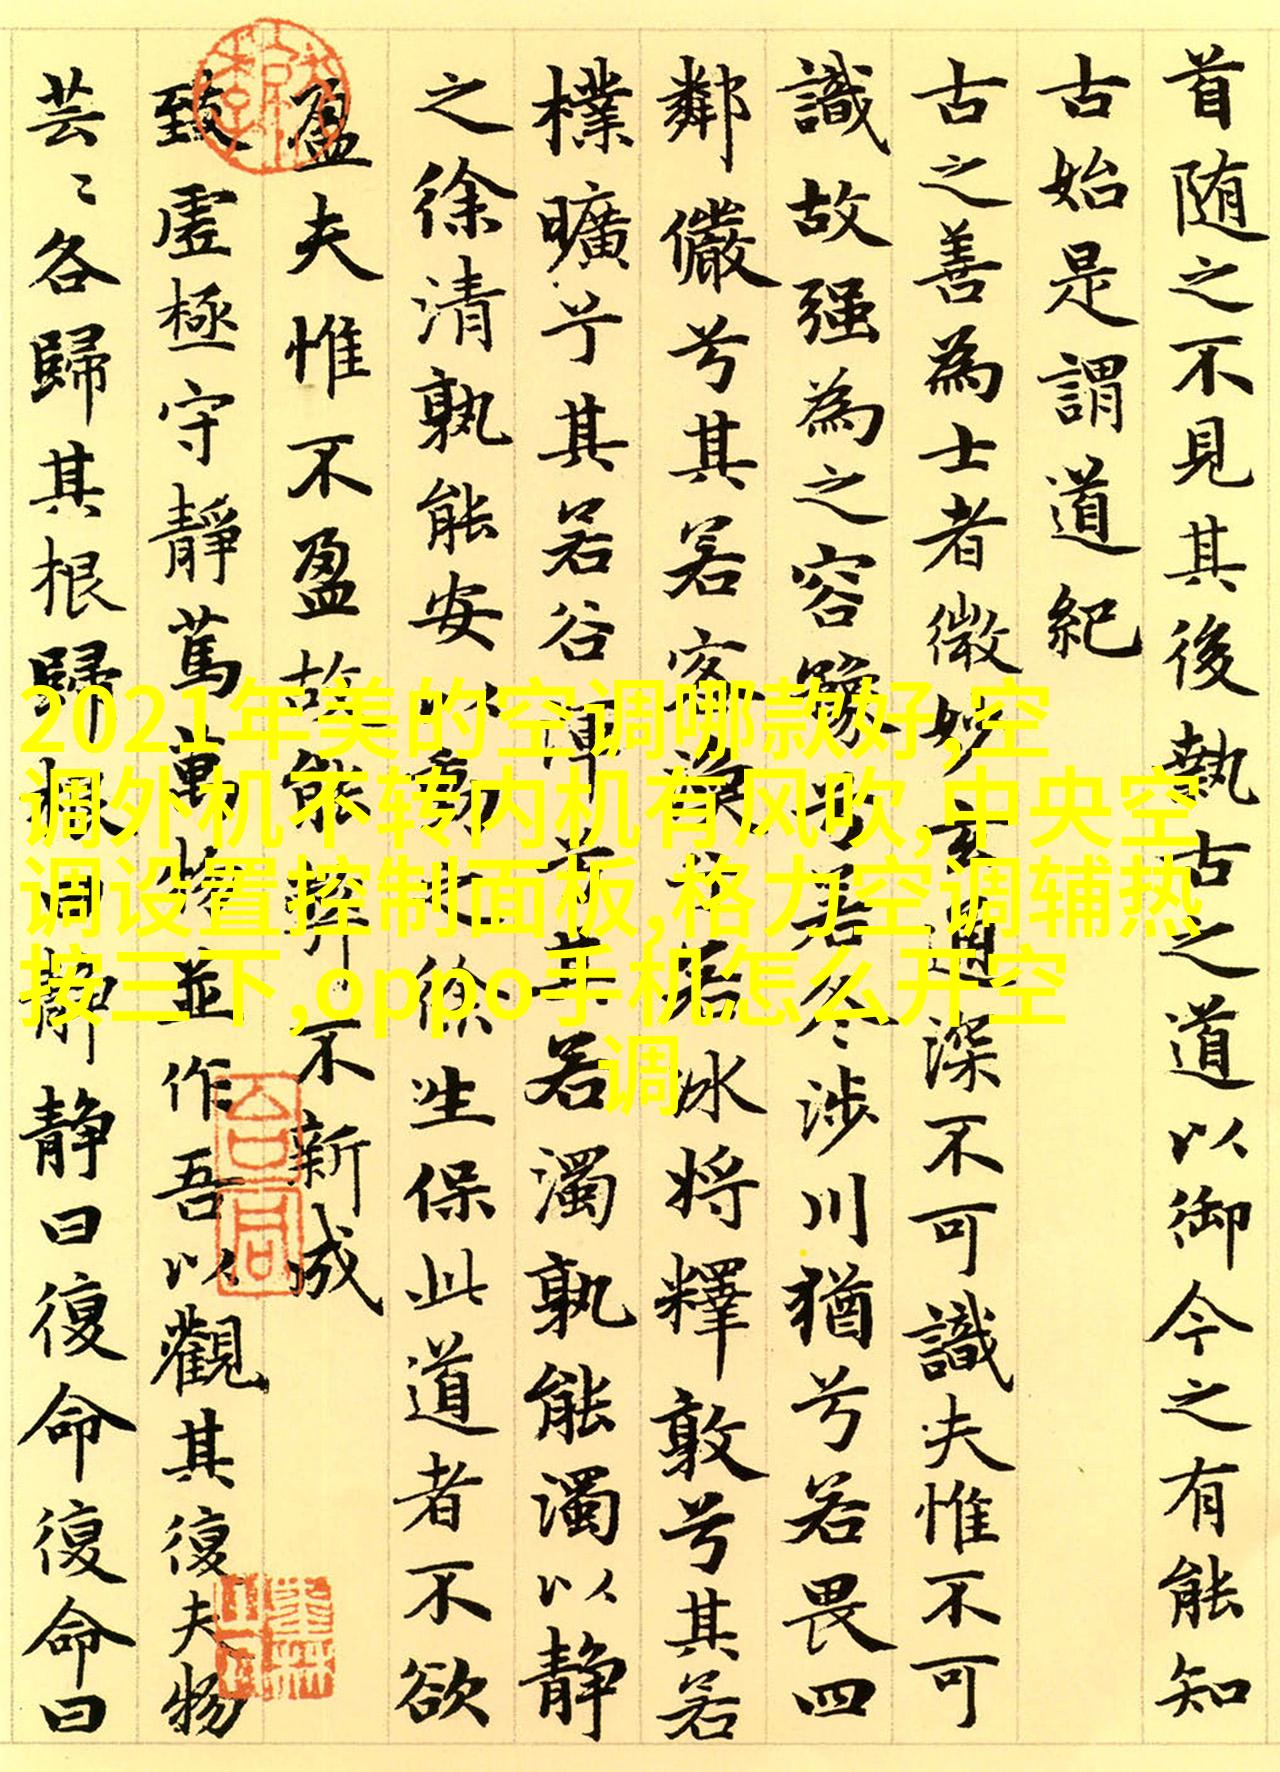 首随之不見其後執古之道以御今之有能知
古始是謂道紀
古之善為士者微妙玄通深不可識夫惟不可
識故强為之容豫兮若冬涉川猶兮若畏四
鄰儼兮其若客渙兮若冰将釋敦兮其若
樸曠兮其若谷渾兮其若濁孰能濁以静
之徐清孰能安以動之徐生保此道者不欲
盈夫惟不盈故能弊不新成
致虛極守靜篤萬物並作吾以觀其復夫物
芸〻各歸其根歸根曰静静曰復命復命曰
2021年美的空调哪款好,空
调外机不转内机有风吹,中央空
调设置控制面板,格力空调辅热
按三下,oppo手机怎么开空
调